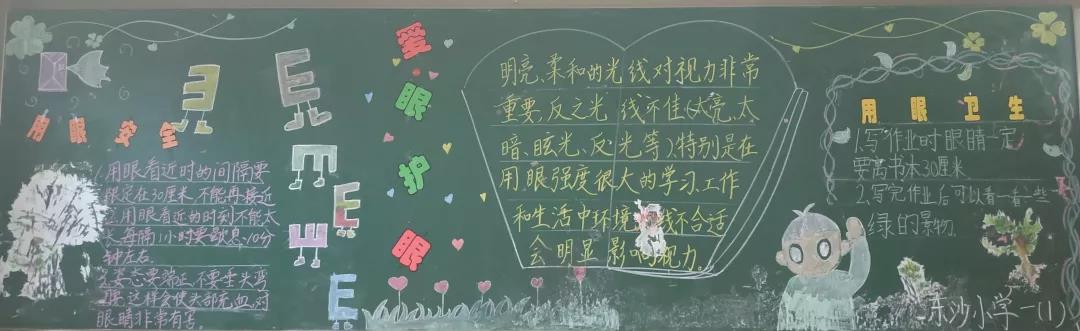 用眼安全
1.用眼看近时的间隔要
限定在30厘米,不能再接近
2.用眼看近的时刻不能太
长,每隔1小时要歇息10分
钟左右。
3.姿态要端正,不要垂头弯
腰,这样会使头部充血,对
眼睛非常有害。
E
E
E
E
E
E
爱·眼护眼
明亮、柔和的光线对视力非常
重要,反之光线不佳(太亮、太
暗、眩光、反光等)特别是在
用眼强度很大的学习、工作
和生活中环境光线不合适
会明显影响视力。
用眼卫生
1.写作业时眼睛一定
要离书本30厘米
2.写完作业后可以看一看一些
绿的景物。
东沙小学一(1)